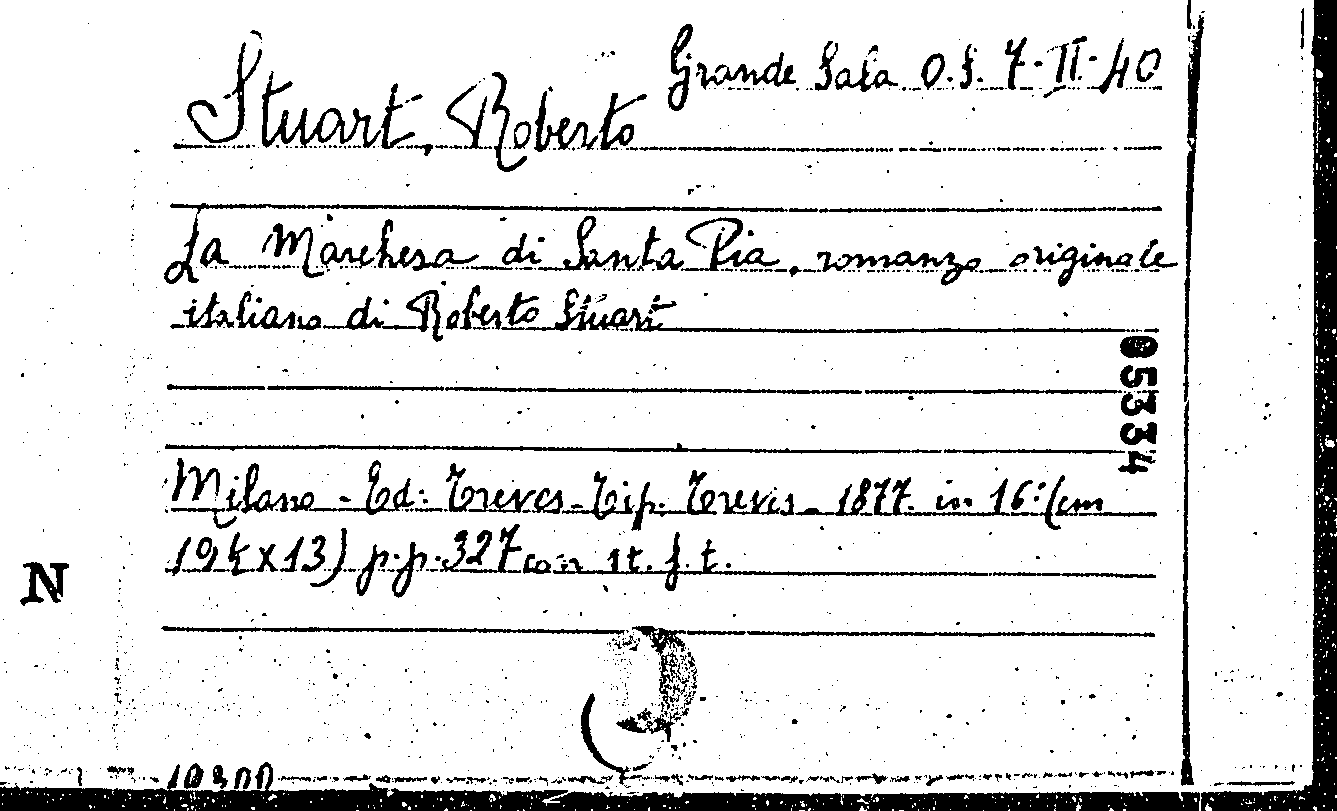 Grande Sala O.S. 7-II-40
Stuart, Roberto
La Marchesa di Santa Pia, romanzo originale
italiano di Roberto Stuart
05334
Milano - Ed: Treves - Tip. Treves - 1877 in 16º (cm
x 13) p.p. 327 con 1 t. f. t.
N